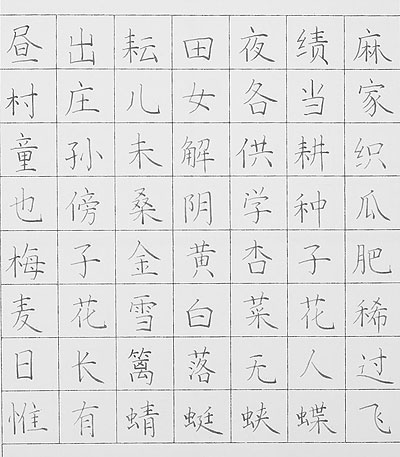 昼出耘田夜绩麻
村庄儿女各当家
童孙未解供耕织
也傍桑阴学种瓜
梅子金黄杏子肥
麦花雪白菜花稀
日长篱落无人过
惟有蜻蜓蛱蝶飞